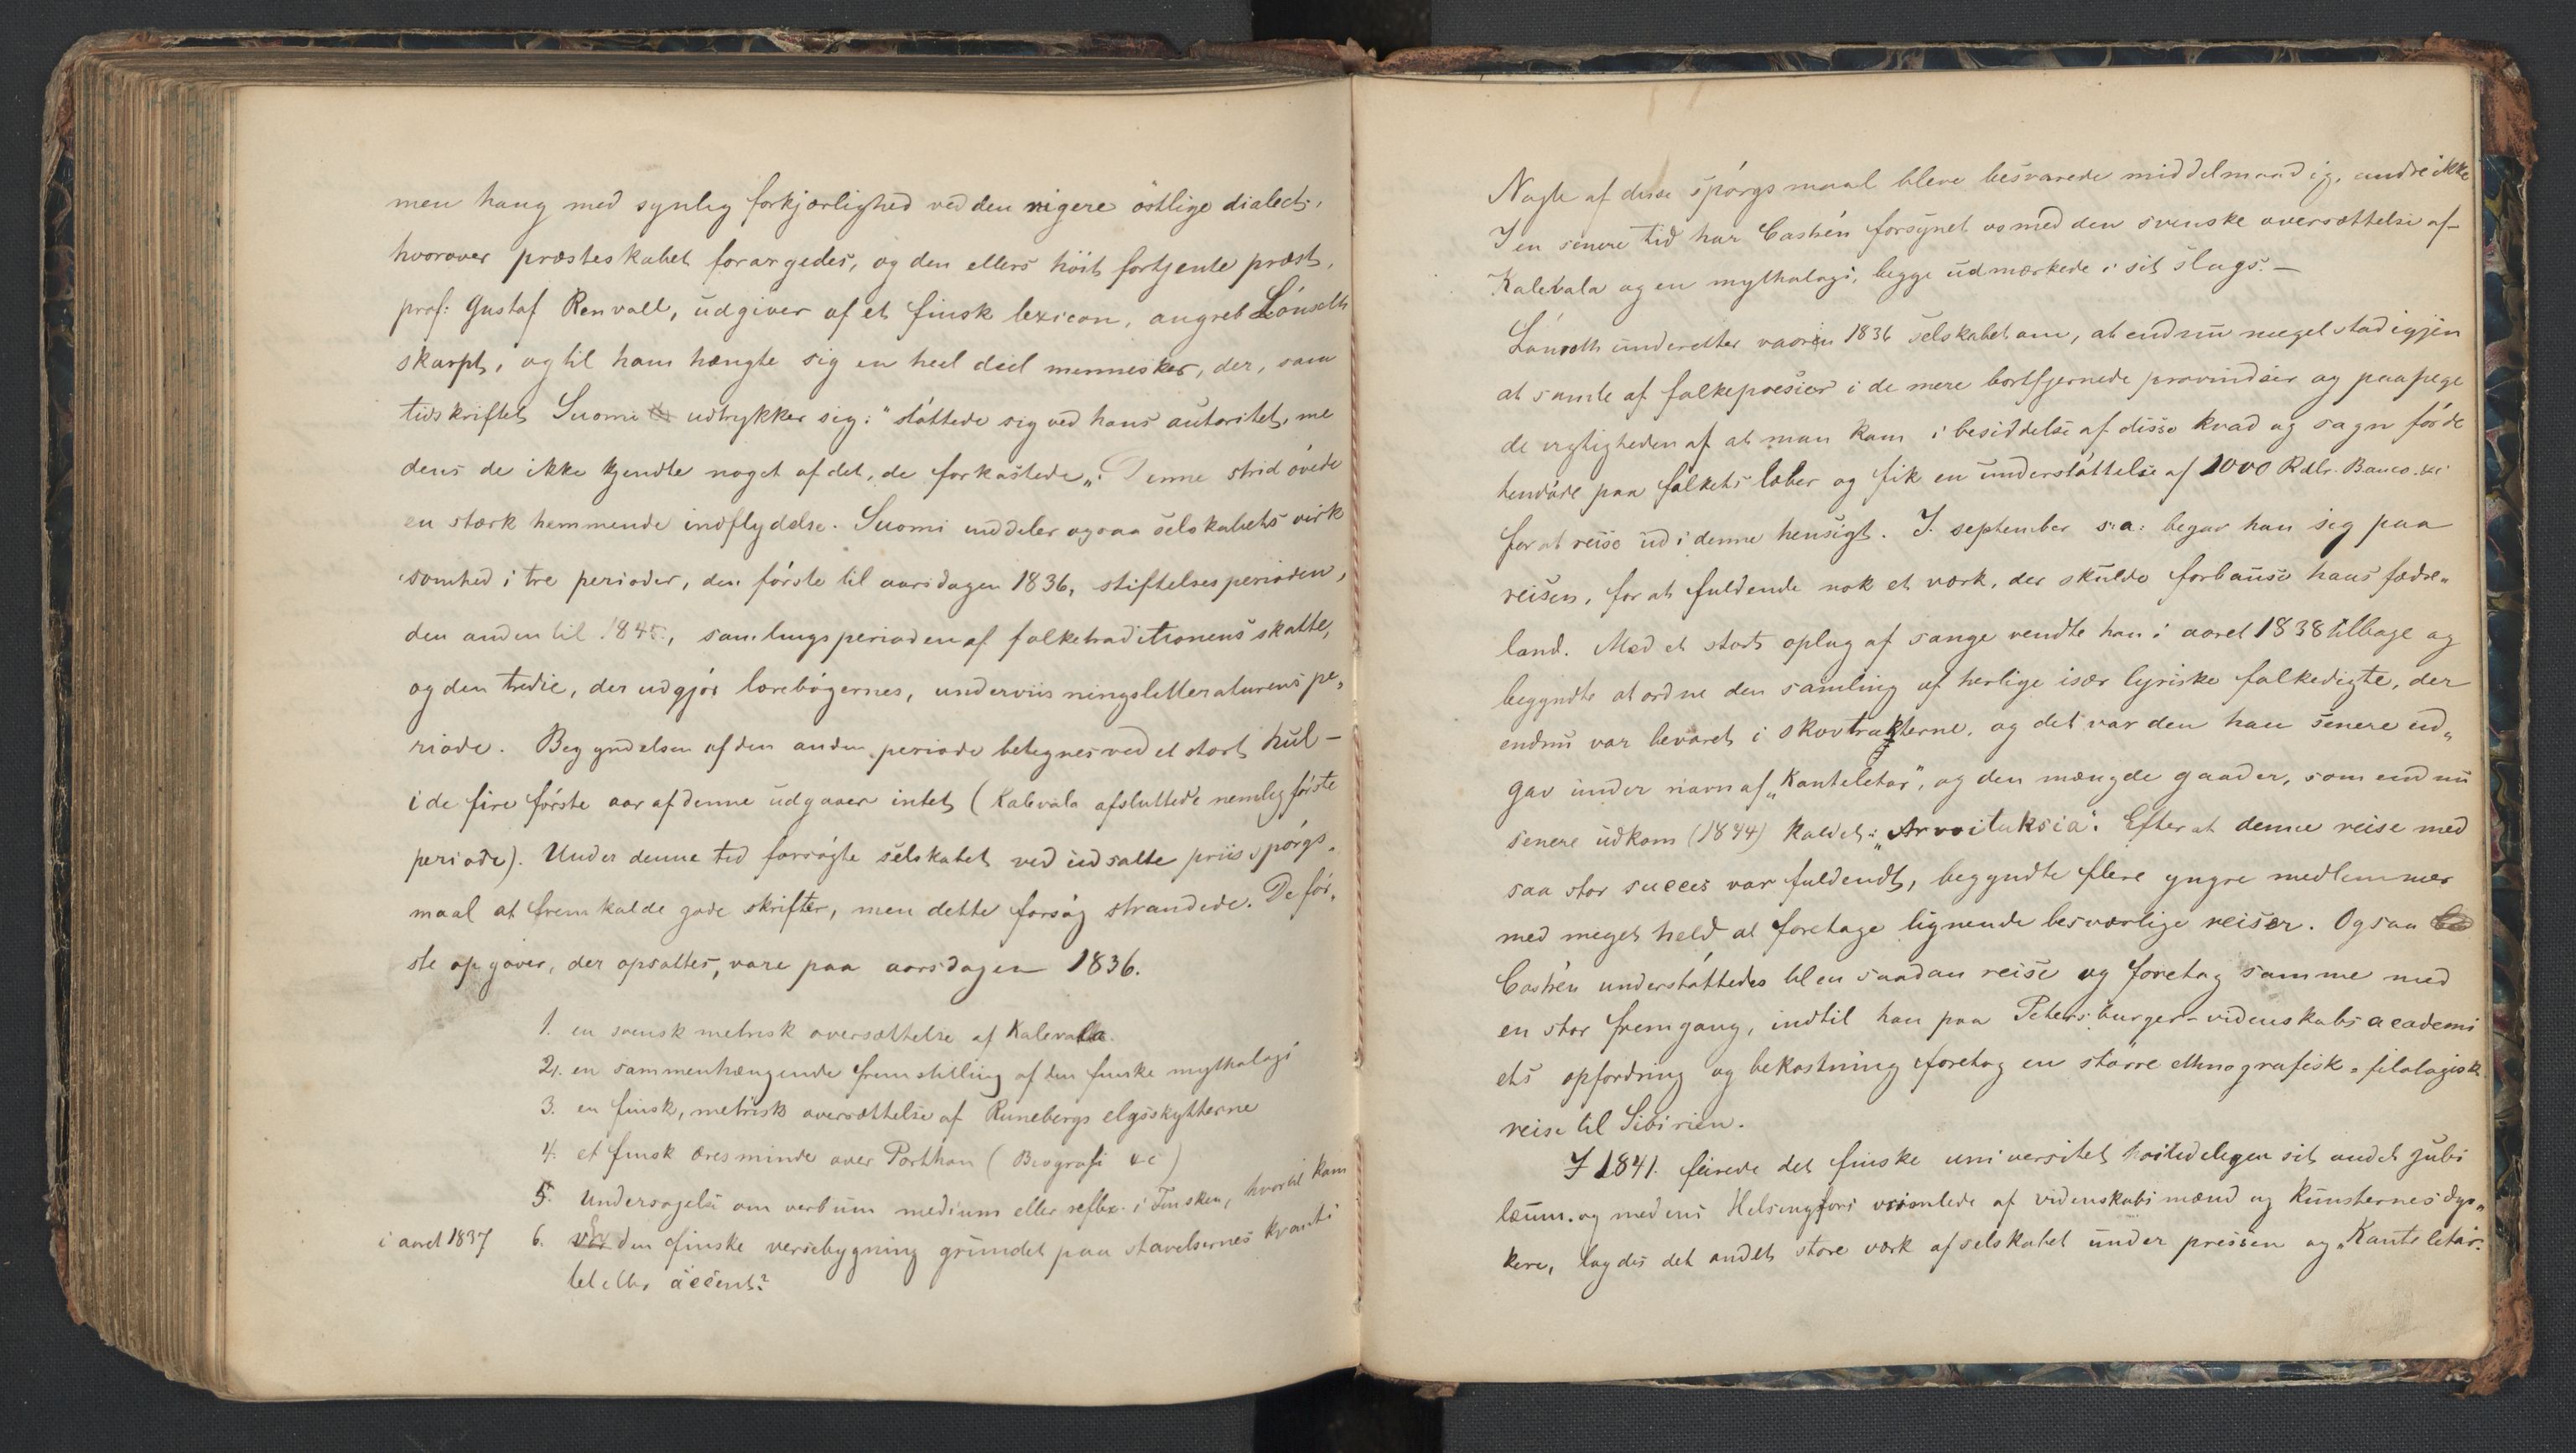 men hang med synlig forkjærlighed ved den rigere östlige dialect,
hvorover præsteskabet forargedes, og den ellers höit fortjente præst,
prof: Gustaf Renvall, udgiver af et finsk lexicon, angreb Lönroth
skarpt, og til ham hængte sig en heel deel mennesker, der, som
tidskriftet Suomi udtrykker sig: "stöttede sig ved hans autoritet, me
dens de ikke kjendte noget af det, de forkastede„. Denne strid övede
en stærk hemmende indflydelse. Suomi inddeler ogsaa selskabets virk
somhed i tre perioder, den förste til aarsdagen 1836, stiftelsesperioden,
den anden til 1845, samlingsperioden af folketraditionens skatte,
og den tredie, der udgjör lærebögernes, underviisningslitteraturens pe„
riode. Begyndelsen af den anden periode betegnes ved et stort hul –
i de fire förste aar af denne udgaaer intet (Kalevala afsluttede nemlig förste
periode). Under denne tid forsögte selskabet ved udsatte priisspörgs„
maal at fremkalde gode skrifter, men dette forsög strandede. De för„
ste opgaver, der opsattes, vare paa aarsdagen 1836.
1. en svensk metrisk oversættelse af Kalevala.
2. en sammenhængende fremstilling af den finske mythologi
3. en finsk, metrisk oversættelse af Runebergs elgsskytterne
4. et finsk æresminde over Porthan (Biografi &c)
5. Undersögelse om verbum medium eller reflex. i Finsken, hvortil kom
i aaret 1837 6. Er den finske versebygning grundet paa stavelsernes kvanti
tet eller accent?
Nogle af disse spörgsmaal bleve besvarede middelmaadig, andre ikke
I en senere tid har Castrén forsynet os med den svenske oversættelse af
Kalevala og en mythologi, begge udmærkede i sit slags. –
Lönroth underetter vaaren 1836 selskabet om, at endnu meget stod igjen
at samle af folkepoesier i de mere bortfjernede provindser og paapege
de vigtigheden af at man kom i besiddelse af disse kvad og sagn för de
hendöde paa folkets læber og fik en understöttelse af 1000 Rdlr. Banco
for at reise ud i denne hensigt. I september s: a: begav han sig paa
reisen, for at fuldende nok et værk, der skulde forbause hans fædre„
land. Med et stort oplag af sange vendte han i aaret 1838 tilbage og
begyndte at ordne den samling af herlige især lyriske folkedigte, der
endnu var bevaret i skovtrakterne, og det var den han senere ud„
gav under navn af „Kanteletar", og den mængde gaader, som endnu
senere udkom (1844) kaldet: „Arvoituksia". Efter at denne reise med
saa stor succes var fuldendt, begyndte flere yngre medlemmer
med meget held at foretage lignende besværlige reiser. Ogsaa
Castrén understöttedes til en saadan reise og foretog samme med
en stor fremgang, indtil han paa Petersburger-videnskabsacademi
ets opfordring og bekostning foretog en större ethnografisk-filologisk
reise til Sibirien.
I 1841. feirede det finske universitet höitideligen sit andet jubi
læum. og medens Helsingfors vrimlede af videnskabsmænd og kunsternes dyr„
kere, lagdes det andet store værk af selskabet under pressen og „Kanteletar.